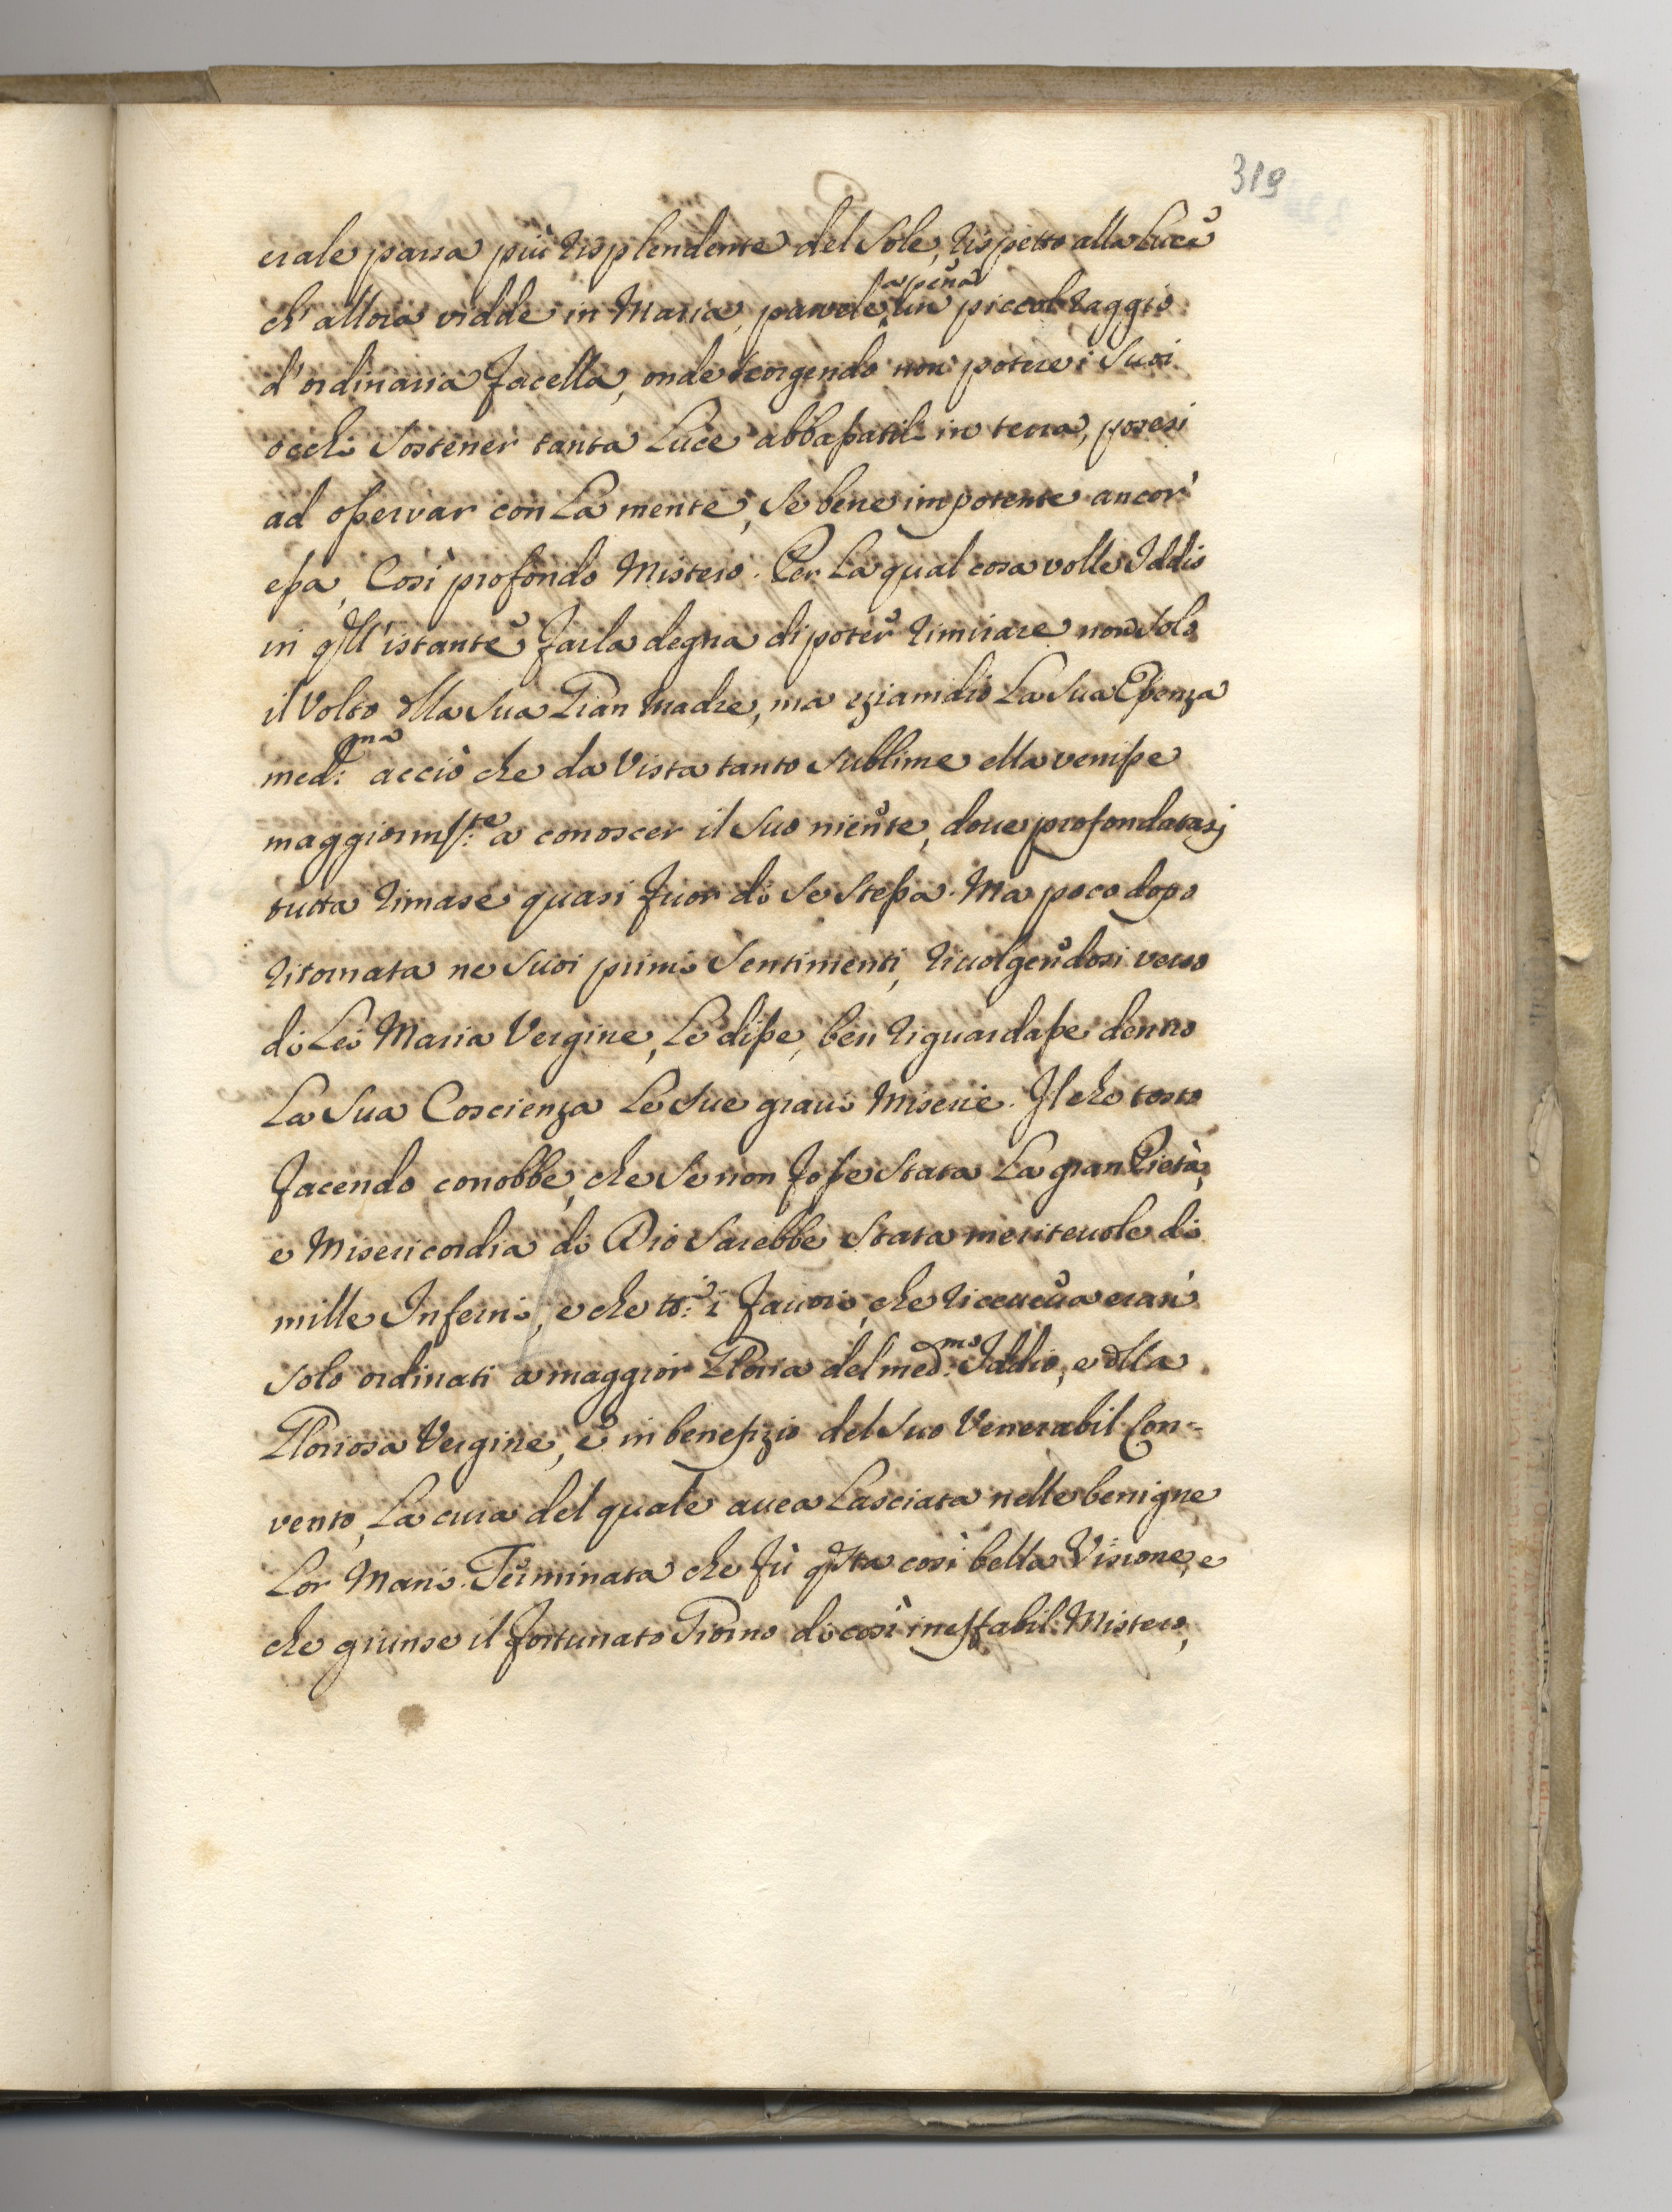 319
ciale parea più risplendente del Sole, rispetto alla Luce
ch'allora vidde in Maria, parvele apena un piccol raggio
d'ordinaria facella, onde scorgendo non potere i Suoi
occhi Sostener tanta Luce abbassatili in terra, posesi
ad osservar con La mente, Se bene impotente ancor'
essa, Così profondo Mistero. Per La qual cosa volle Iddio
in qll'istante farla degna di poter rimirare non Solo
il Volto dlla Sua Gran Madre, ma eziamdio La Sua Essenza
med:ma acciò che da Vista tanto Sublime ella venisse
maggiorm:te a conoscer il Suo niente, doue profondatasj
tutta rimase quasi fuor di Se Stessa. Ma poco dopo
ritornata ne Suoi primi Sentimenti, riuolgendosi verso
di Lei Maria Vergine, Le disse, ben riguardasse dentro
La Sua Coscienza Le Sue graui Miserie. Il che tosto
facendo conobbe, che Se non fosse Stata La gran Pietà,
e Misericordia di Dio Sarebbe Stata meriteuole di
mille Inferni, e che tt:i i fauori, che riceueua eran'
Solo ordinati a maggior Gloria del med:mo Iddio, e dlla
Gloriosa Vergine, e in benefizio del Suo Venerabil Con=
vento, La cura del quale auea Lasciata nelle benigne
Lor Mani. Terminata che fù qsta così bella Visione, e
che giunse il fortunato Giorno di così ineffabil Mistero,